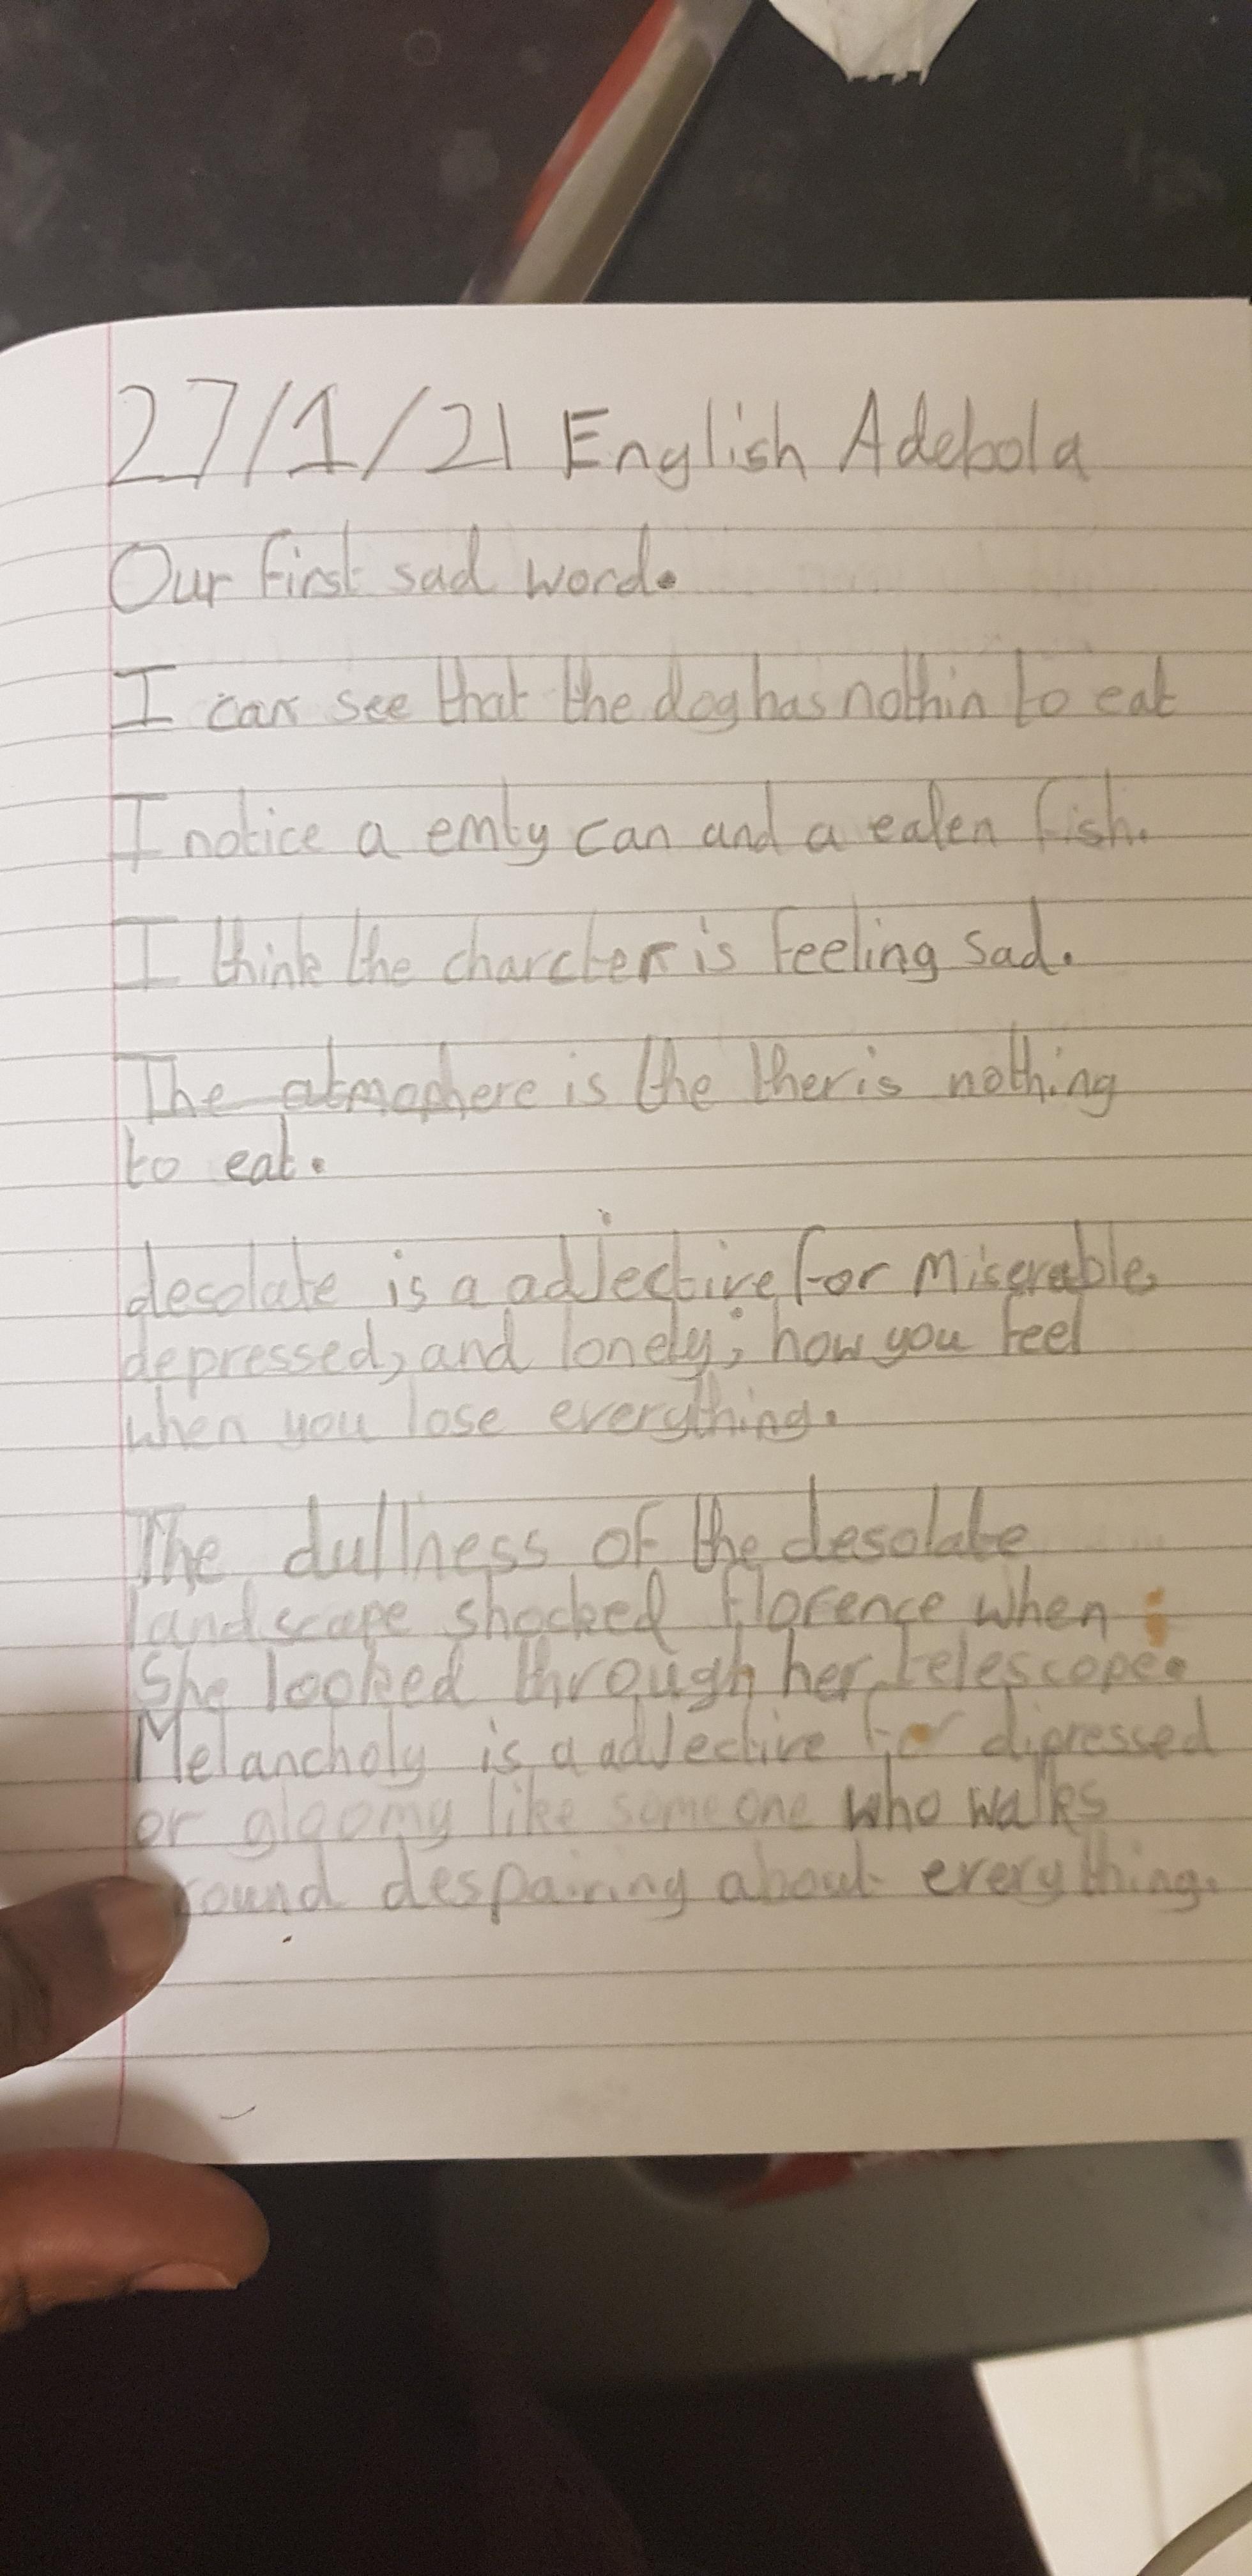 27/1/21 English Adebola
Our first sad word.
I can see that the dog has nothin to eat
I notice a emty can and a eaten fish.
I think the charcter is feeling sad.
The atmophere is the ther is nothing
to eat.
desolate is a adjective for miserable,
depressed, and lonely; how you feel
when you lose everything.
The dullness of the desolate
landscape shocked florence when
she looked through her telescope.
Melancholy is a adjective for dipressed
or gloomy like someone who walks
round despairing about everything.